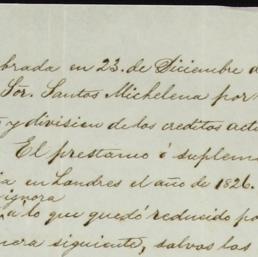 brada en 23. de Diciembre d
Sor. Santos Michelena por
y division de los creditos acti
El prestamo ó suplem
ia en Londres el año de 1826.
ignora
a lo que quedó reducido po
nera siguiente, salvos los